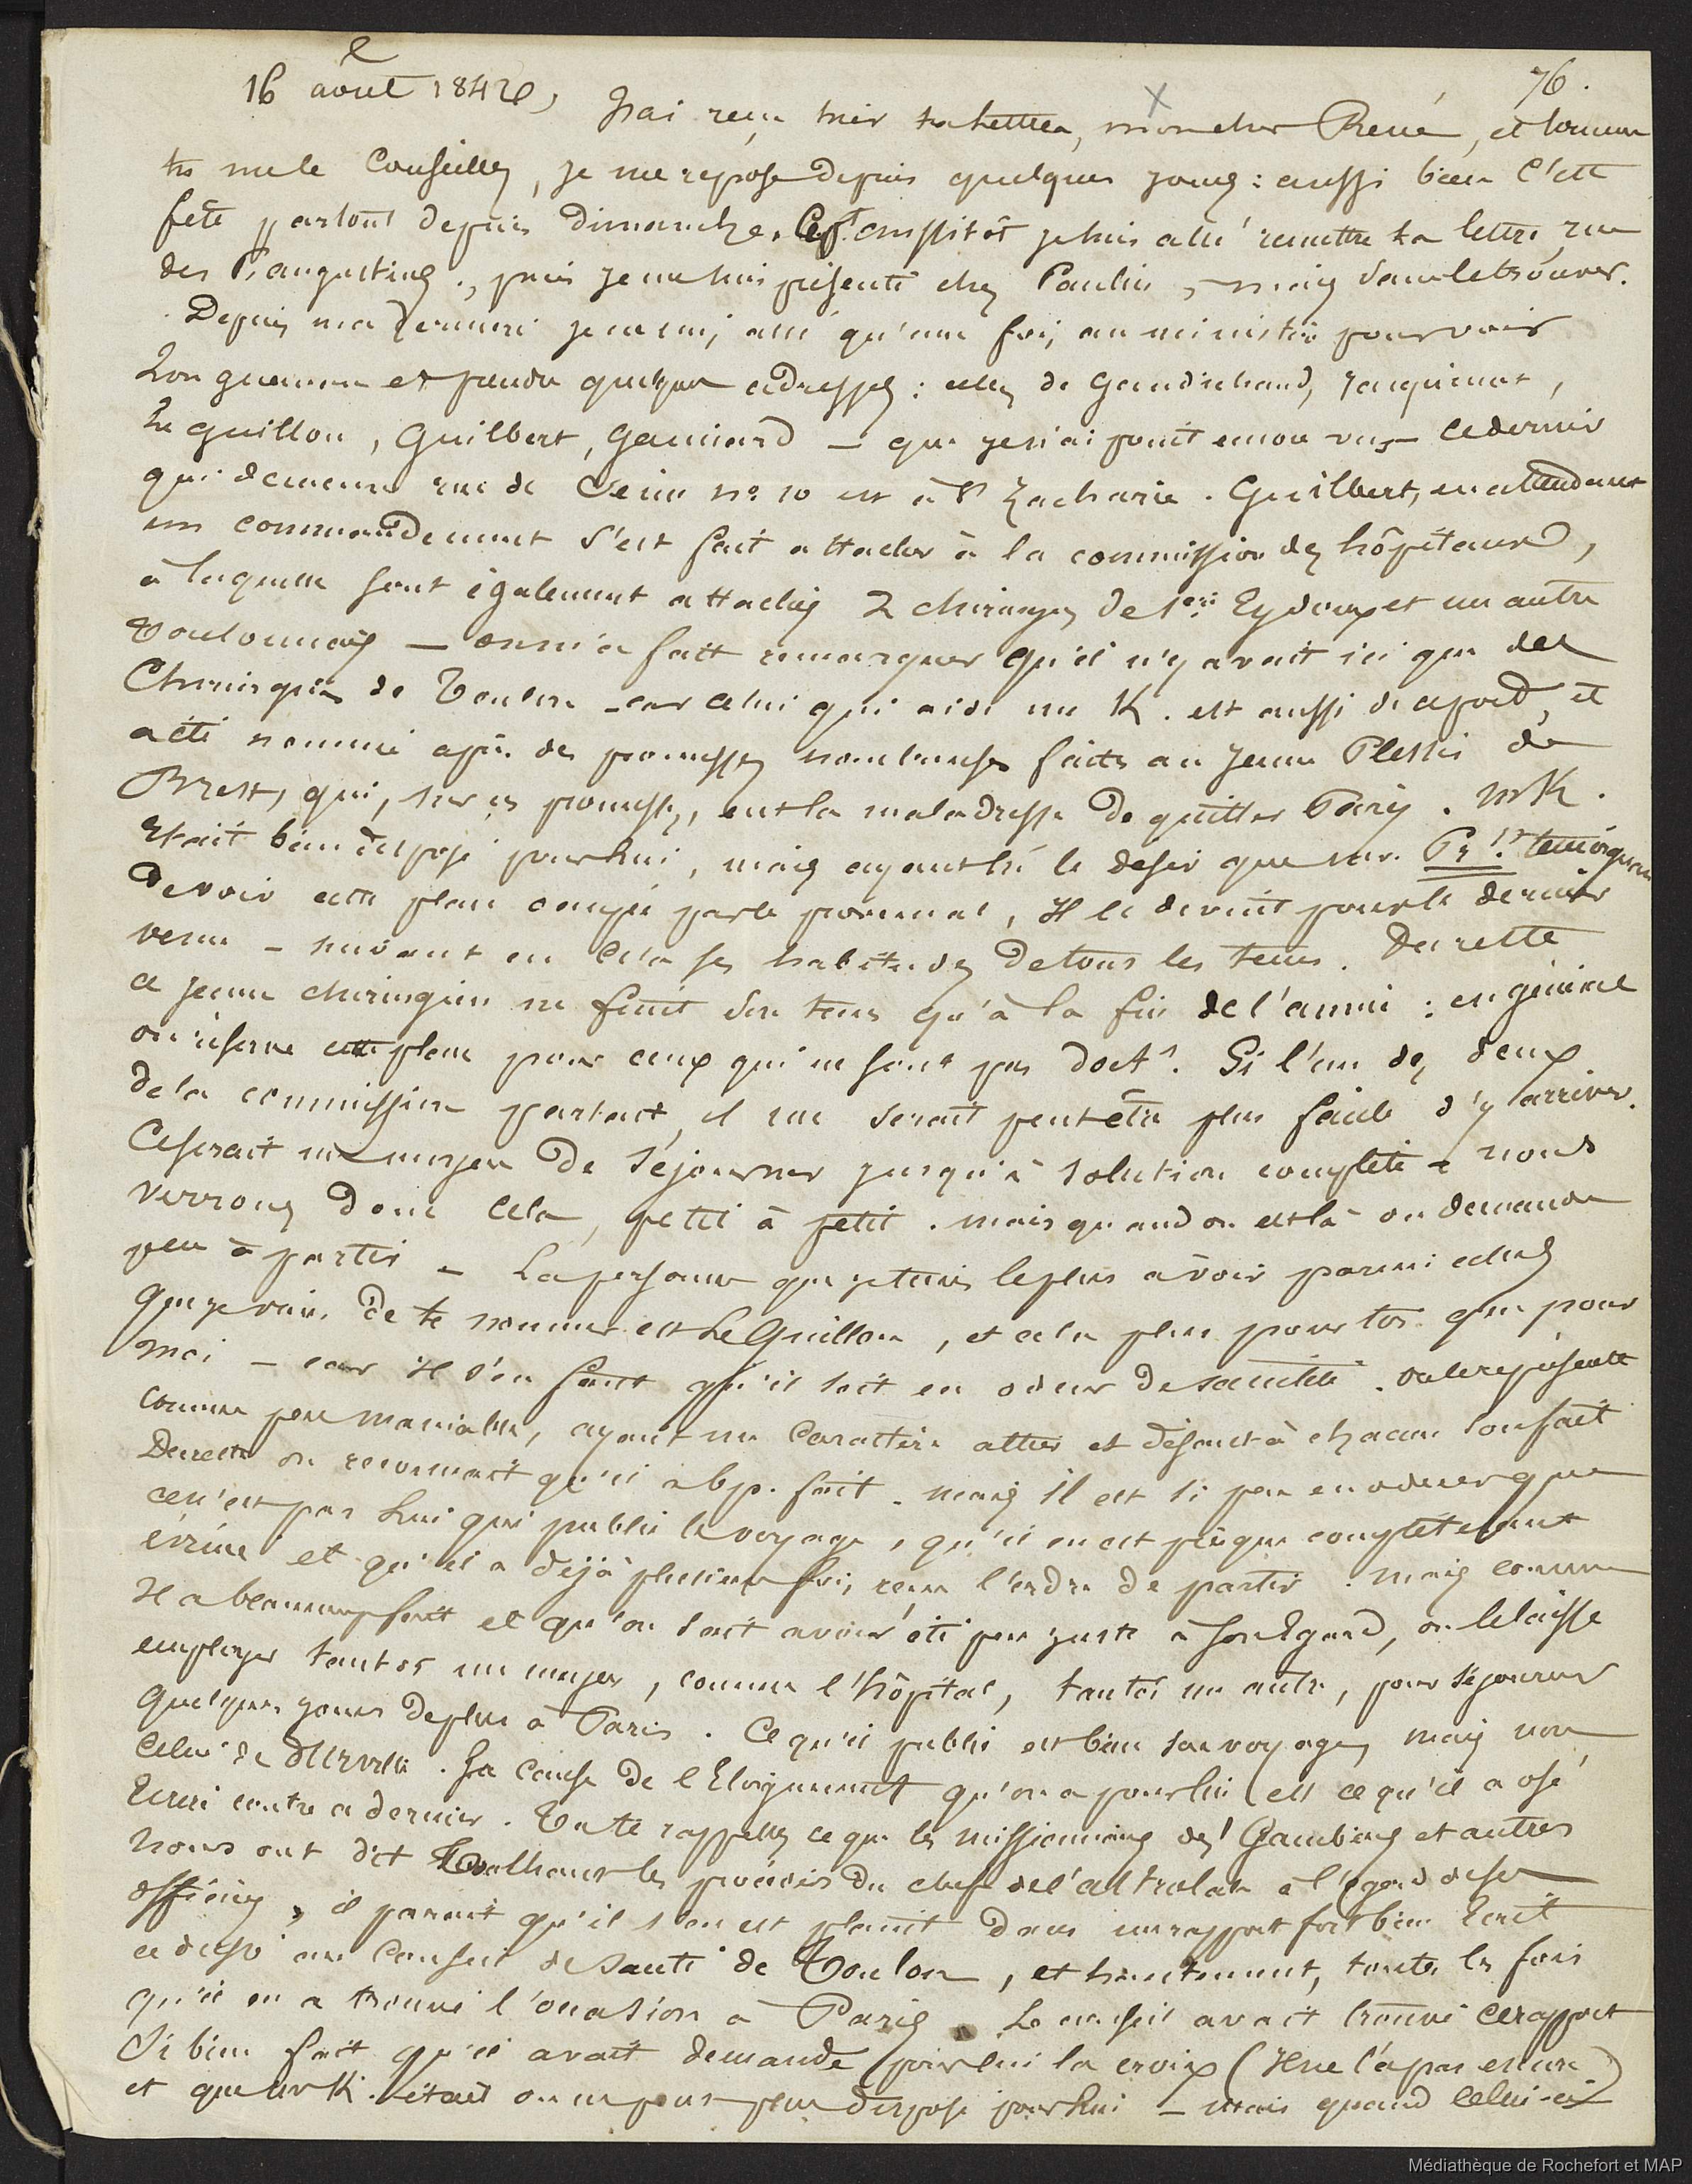 76.
16 août 1842, J'ai reçu hier ta lettre, mon cher René, et comme
tu me le conseilles, je me repose depuis quelques jours : aussi bien c'est
fête partout depuis dimanche. aussitôt je suis allé remettre ta lettre rue
des Pts augustins, puis je me suis présenté chez Paulin, mais sans le trouver.
Depuis ma dernière je ne suis allé qu'une fois au ministère pour voir
et prendre quelques adresses : celles de Gaudichaud, Jacquinot,
Le guillou, Guilbert, Gaimard — que je n'ai point encore vus — ce dernier
qui demeure rue de Seine no. 10 est à Zacharie. Guilbert, en attendant
un commandement s'est fait attacher à la commission des hôpitaux,
à laquelle sont également attachés 2 chirurgs de 1ere Eydoux et un autre
Toulonnais — on m'a fait remarquer qu'il n'y avait ici que des
Chirurgiens de Toulon — car celui qui aide mr K. est aussi de ce port, et
a été nommé après des promesses nombreuses faites au jeune Plessis de
Brest, qui, sur ces promesses, eut la maladresse de quitter Paris. Mr K.
était bien disposé pour lui, mais ayant su le désir que mr. Prt. témoignait
de voir cette place occupée par le provençal, il le devint pour le dernier
venu — suivant en cela ses habitudes de tous les tems. Du reste
ce jeune chirurgien ne finit son tems qu'à la fin de l'année : en général
on réserve cette place pour ceux qui ne sont pas doctrs. Si l'un des deux
de la commission partait, il me serait peut être plus facile d'y arriver.
Ce serait un moyen de séjourner jusqu'à solution complète — nous
verrons donc cela, petit à petit. mais quand on est là on demande
peu à partir — La personne que je tenais le plus à voir parmi celles
que je viens de te nommer est Le Guillou, et cela plus pour toi que pour
moi — car il s'en faut qu'il soit en odeur de sainteté. on le représente
comme peu maniable, ayant un caractère altier et disant à chacun son fait
Du reste on reconnaît qu'il a bp. fait. mais il est si peu en odeur que
ce n'est pas lui qui publie le voyage, qu'il en est presque complètement
évincé et qu'il a déjà plusieurs fois reçu l'ordre de partir. mais comme
il a beaucoup fait et qu'on sait avoir été peu juste à son égard, on le laisse
employer tantôt un moyen, comme l'hôpital, tantôt un autre, pour séjourner
quelques jours de plus à Paris. Ce qu'il publie est bien son voyage, mais non
celui de d'Urville. La cause de l'éloignement qu'on a pour lui est ce qu'il a osé
écrire contre ce dernier. Tu te rappelles ce que les missionnaires des Gambiers et autres
nous ont dit touchant les procédés du chef de l'astrolabe à l'égard de ses
officiers, il parait qu'il s'en est plaint dans un rapport fort bien écrit
adressé au Conseil de santé de Toulon, et hautement, toutes les fois
qu'il en a trouvé l'occasion à Paris. Le conseil avait trouvé ce rapport
si bien fait qu'il avait demandé pour lui la croix (il ne l'a pas encore)
et que mr K. était on ne peut plus disposé pour lui — mais quand celui-ci
Médiathèque de Rochefort et MAP